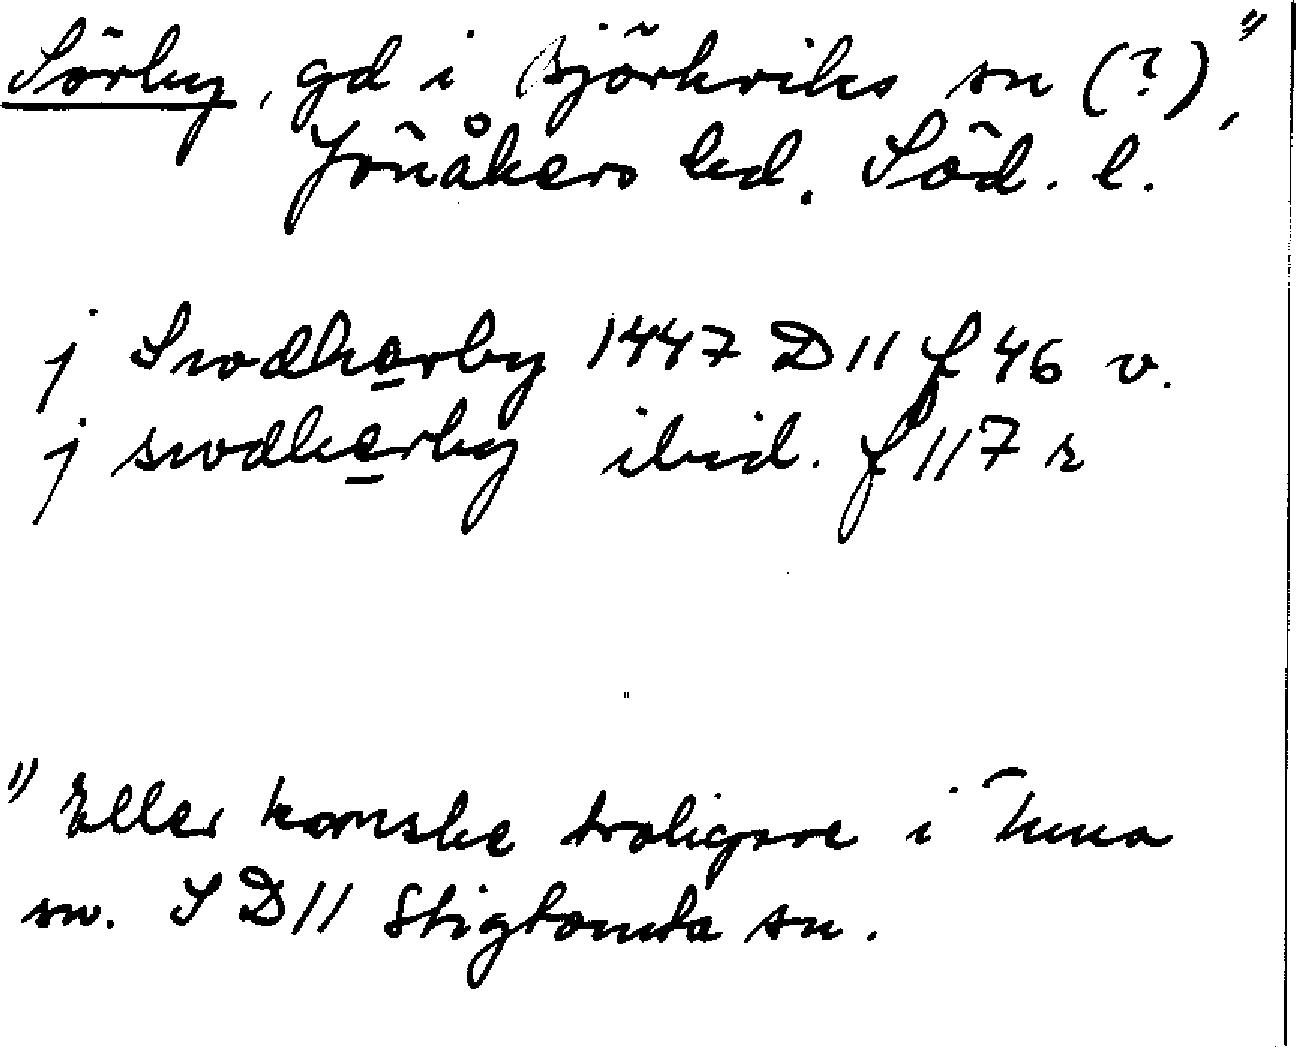 Sörby, gd i Björkviks sn (?),"
Jönåkers hd. Söd. l.
j Swdherby 1447 D11 f 46 v.
j swdherby ibid. f 117 r
" Eller kanske troligare i Tuna
sn. I D11 Stigtomta sn.